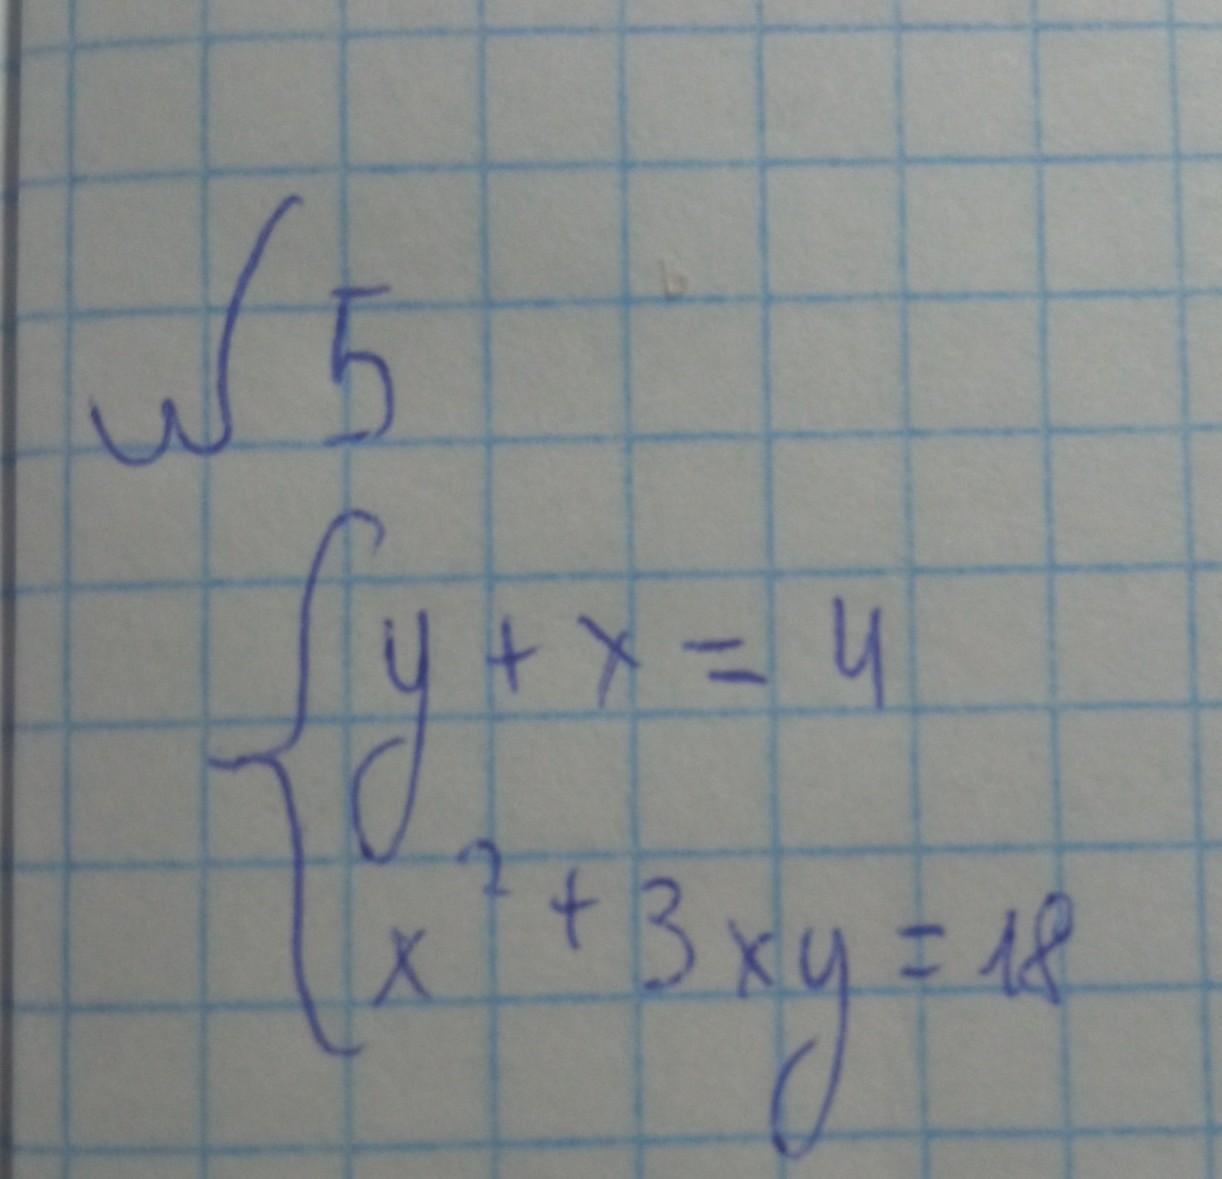 № 5
y + x = 4
x² + 3xy = 18